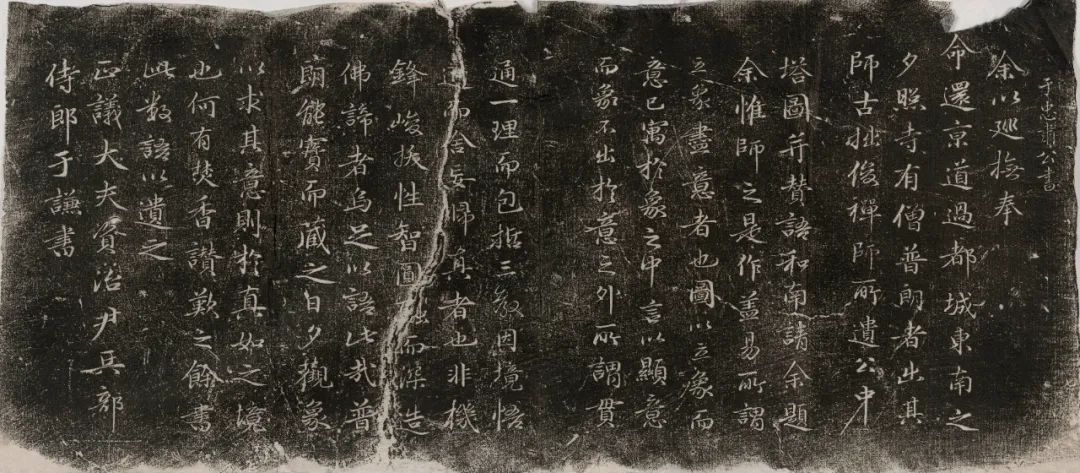 于忠肅公書
余以廵撫奉
命還京道過都城東南之
夕照寺有僧普朗者出其
師古拙俊禪師所遺公中
塔圖并贊語和南請余題
余惟師之是作盖易所謂
立象盡意者也圖以立象而
意已寓於象之中言以顯意
而象不出於意之外所謂貫
通一理而包括三教因境悟
道而舍妄歸真者也非機
鋒峻拔性智圓融而深造
佛諦者烏足以語此哉普
朗能寶而藏之日夕觀象
以求其意則於真如之境
也何有焚香讚歎之餘書
此數語以遺之
正議大夫資治尹兵部
侍郎于謙書